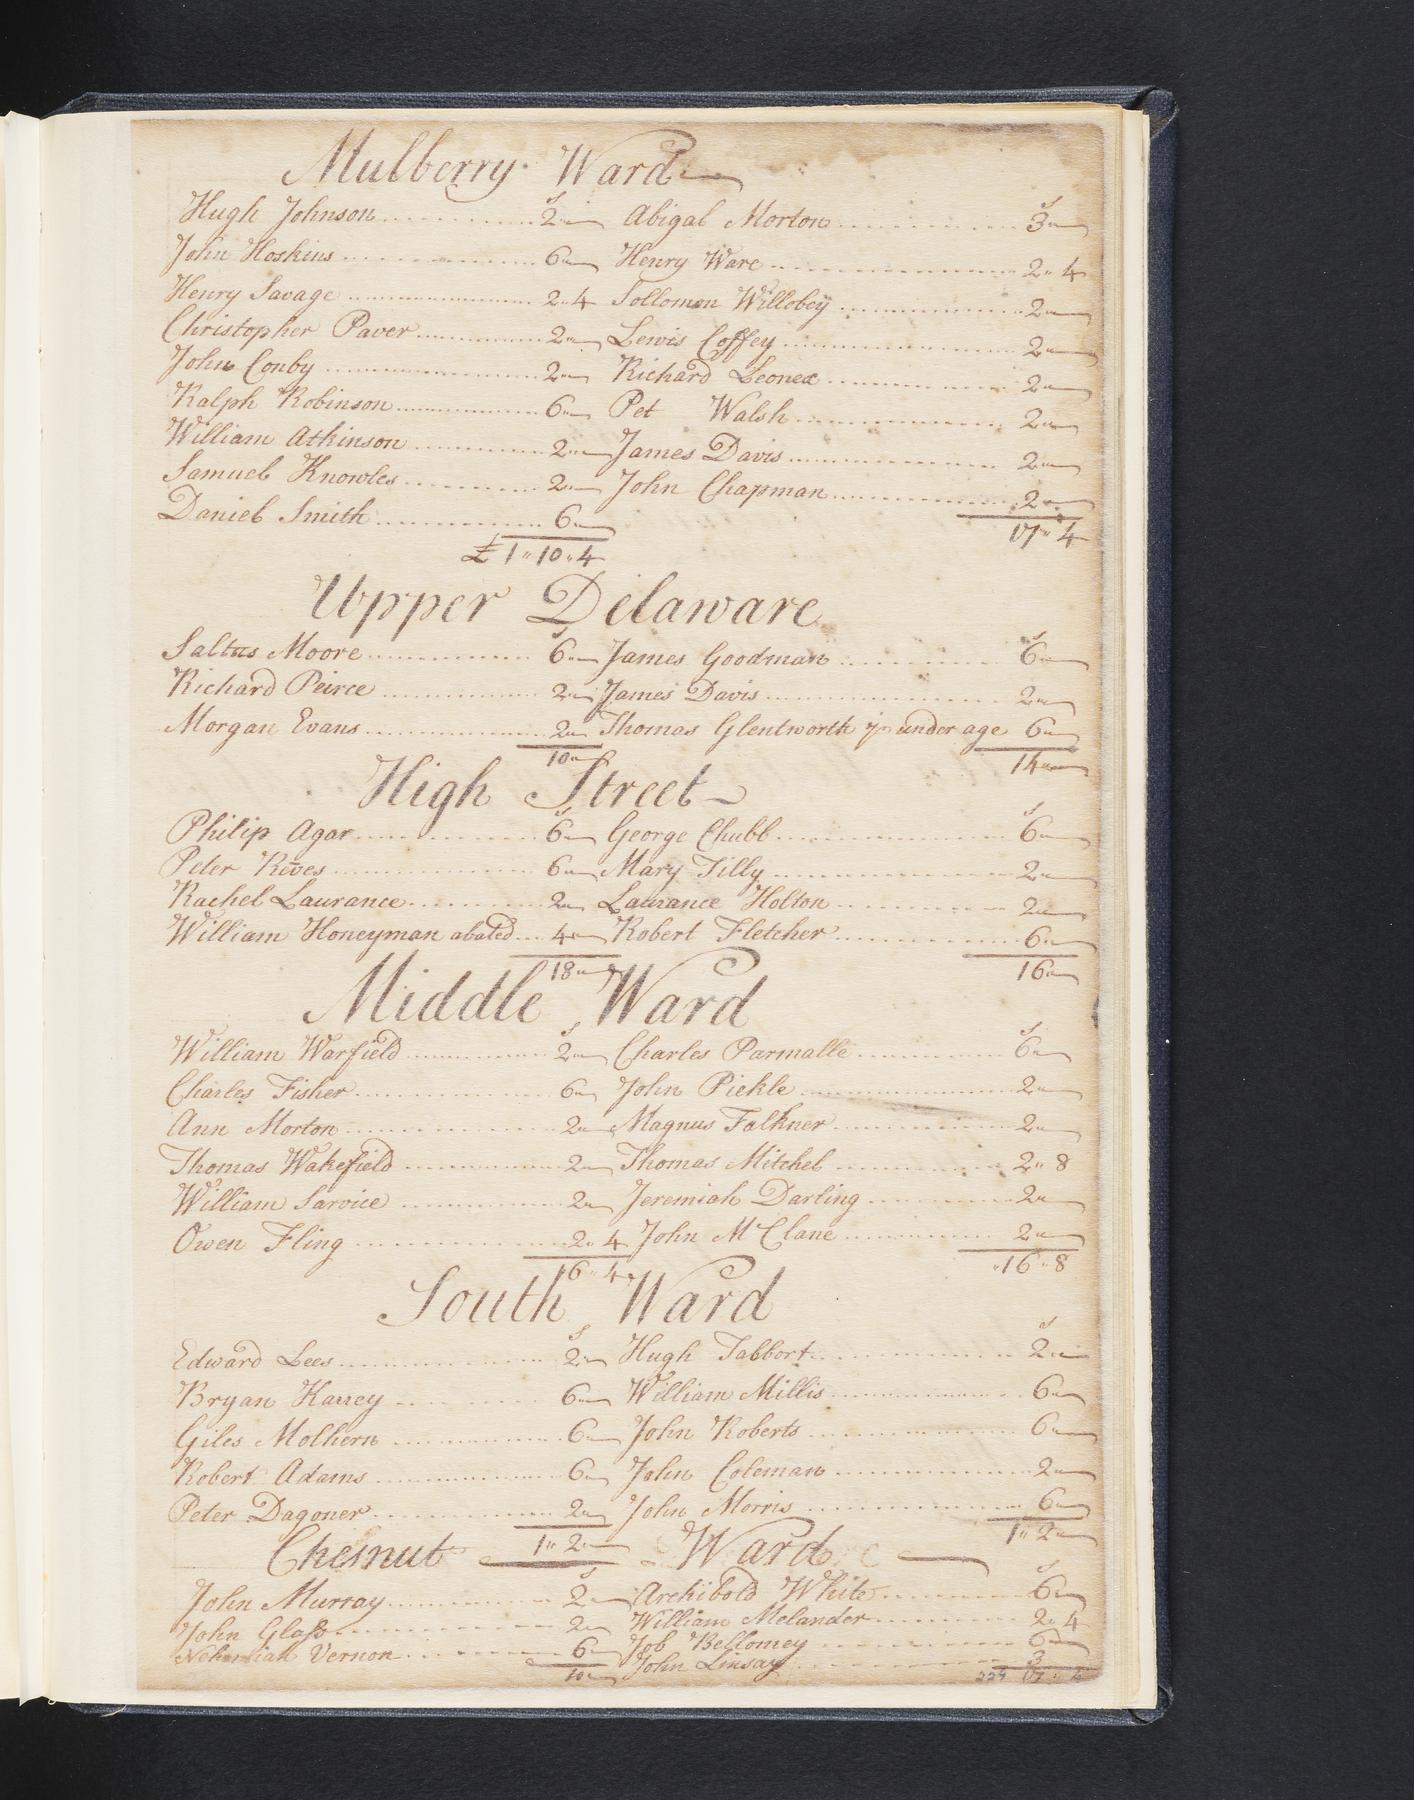 Mulberry Ward
s s
Hugh Johnson 2„ Abigal Morton 3„
John Hoskins 6„ Henry Ware 2„4
Henry Savage 2„4 Sollomon Willobey 2„
Christopher Paver 2„ Lewis Coffey 2„
John Conby 2„ Richard Leonex 2„
Ralph Robinson 6„ Pet Walsh 2„
William Atkinson 2„ James Davis 2„
Samuel Knowles 2„ John Chapman 2„
Daniel Smith 6„ 17„4
£1„10„4
Upper Delaware
s s
Saltus Moore 6„ James Goodman 6„
Richard Peirce 2„ James Davis 2„
Morgan Evans 2„ Thomas Glentworth under age 6„
10„ 14„
High Street
s s
Philip Agar 6„ George Chubb 6„
Peter Rives 6„ Mary Tilly 2„
Rachel Laurance 2„ Laurance Holton 2„
William Honeyman abated 4„ Robert Fletcher 6„
18„ 16„
Middle Ward
s s
William Warfield 2„ Charles Parmalle 6„
Charles Fisher 6„ John Pickle 2„
Ann Morton 2„ Magnus Falkner 2„
Thomas Wakefield 2„ Thomas Mitchel 2„8
William Sarvice 2„ Jeremiah Darling 2„
Owen Fling 2„4 John McClane 2„
16„4 16„8
South Ward
s s
Edward Lees 2„ Hugh Tabbort 2„
Bryan Karrey 6„ William Millis 6„
Giles Molhern 6„ John Roberts 6„
Robert Adams 6„ John Coleman 2„
Peter Dagoner 2„ John Morris 6„
1„2„ 1„2„
Chesnut Ward
s s
John Murray 2„ Archibold White 6„
John Glass 2„ William Melander 2„4
Nehemiah Vernon 6„ Job Bellomey 6„
10„ John Linsay 3
17„4